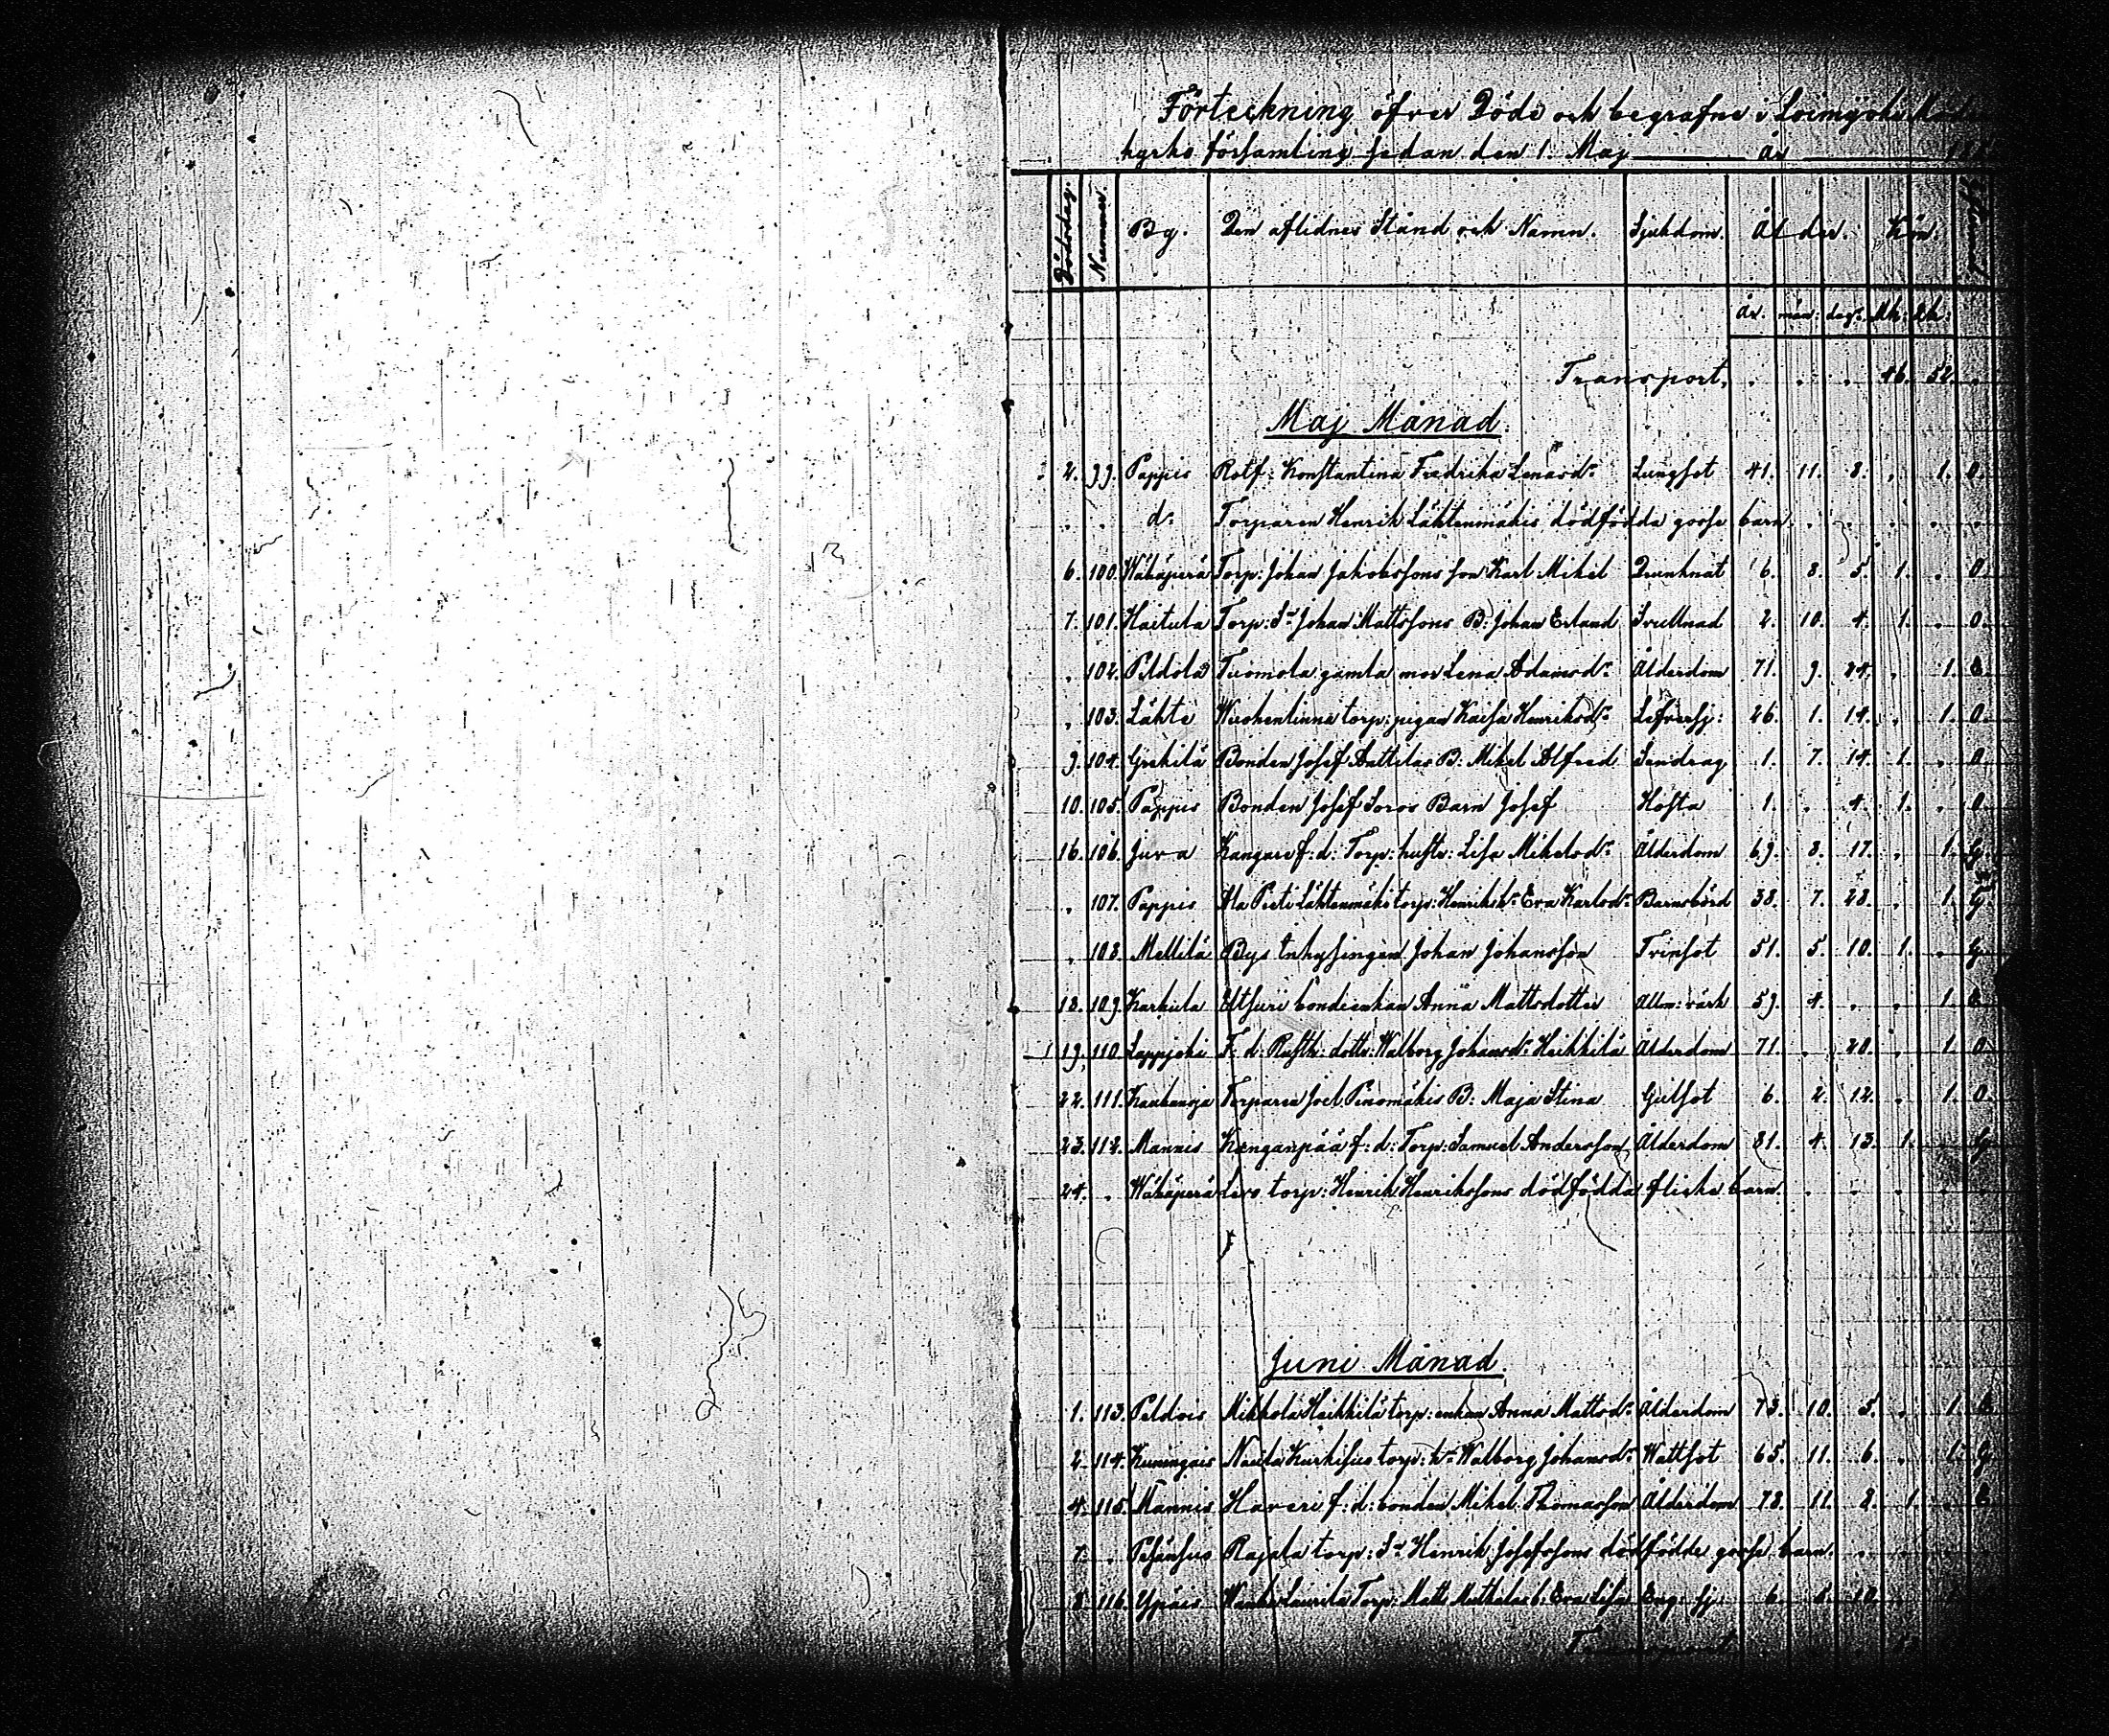 Förteckning öfver Döde och begrafne i Loimijoki Moder
kyrko församling sedan den 1. Maj år 18
Dödsdag. Nummer. By. Den aflidnes Stånd och Namn. Sjukdom. Ålder. Kön.
år. mån. dagr. Mk: Qk:
Transport, 46. 52.
Maj Månad.
2. 99. Pappis Rotf: Konstantina Fredrika Lenardr Lungsot 41. 11. 8. 1. O.
do Torparen Henrik Lähtenmäkis dödfödda gosse barn
6. 100. Wähäperä Torp: Johan Jakobssons son Karl Mikel Drunknat 6. 8. 5. 1. O
7. 101. Haitula Torp: Sn Johan Mattssons B: Johan Erland Svullnad 2. 10. 4. 1. O.
102. Peldola Tuomola gamla mor Lena Adamsdr Ålderdom 71. 9. 24. 1. E.
103. Lähte torp: pigan Kaisa Henriksdr Lefversj: 26. 1. 14. 1. O.
9. 104. Hirvikilä... Bonden Josef Anttilas B: Mikel Alfred Sendrag 1. 7. 14. 1. O
10. 105. Pappis Bonden Josef Soros Barn Josef Hosta 1. 4. 1. O.
16. 106. Juva Kangare f: d: Torp: hustr: Lisa Mikelsdr Ålderdom 69. 8. 17. 1. G.
107. Pappis Ala Pieti Lähtenmäki torp: Henriks hu Eva Karlsdr Barnsbörd 38. 7. 28. 1. G.
108. Mellilä Bys Inhysingen Johan Johansson Trinsot 51. 5. 10. 1. G
18. 109. Karhula Eltsuri bondeenkan Anna Mattsdotter Allm: värk 59. 4. 1. E.
19. 110. Lappjoki F: d: Rusth: dottr: Walborg Johansdr Heikkilä Ålderdom 71. 20. 1. O
22. 111. Kauhanoja Torparen Joel Pinomäkis B: Maja Stina Gulsot 6. 2. 12. 1. O.
23. 112. Mannis Kanganpää f: d: Torp: Samuel Andersson Ålderdom 81. 4. 13. 1. G
24. Wähäperä Levo torp: Henrik Henrikssons dödfödda flicke barn.
Juni Månad.
1. 113. Peldois Mikkola Heikkilä torp: enkan Anna Mattsdr Ålderdom 73. 10. 5. 1. E
2. 114. Kuningois Naula torp: hu Walborg Johansdr Wattsot 65. 11. 6. 1. G
4. 115. Mannis Haveri f: d: bonden Mikel Thomasson Ålderdom 78. 11. 8. 1. E
7. Pesänsuo Rajala torp: Sn Henrik Josefssons dödfödde gosse barn.
8. 116. Ypäis Laurila Torp: Matts b: Eva Lisa Eng: sj: 6. 6. 10.
Transport